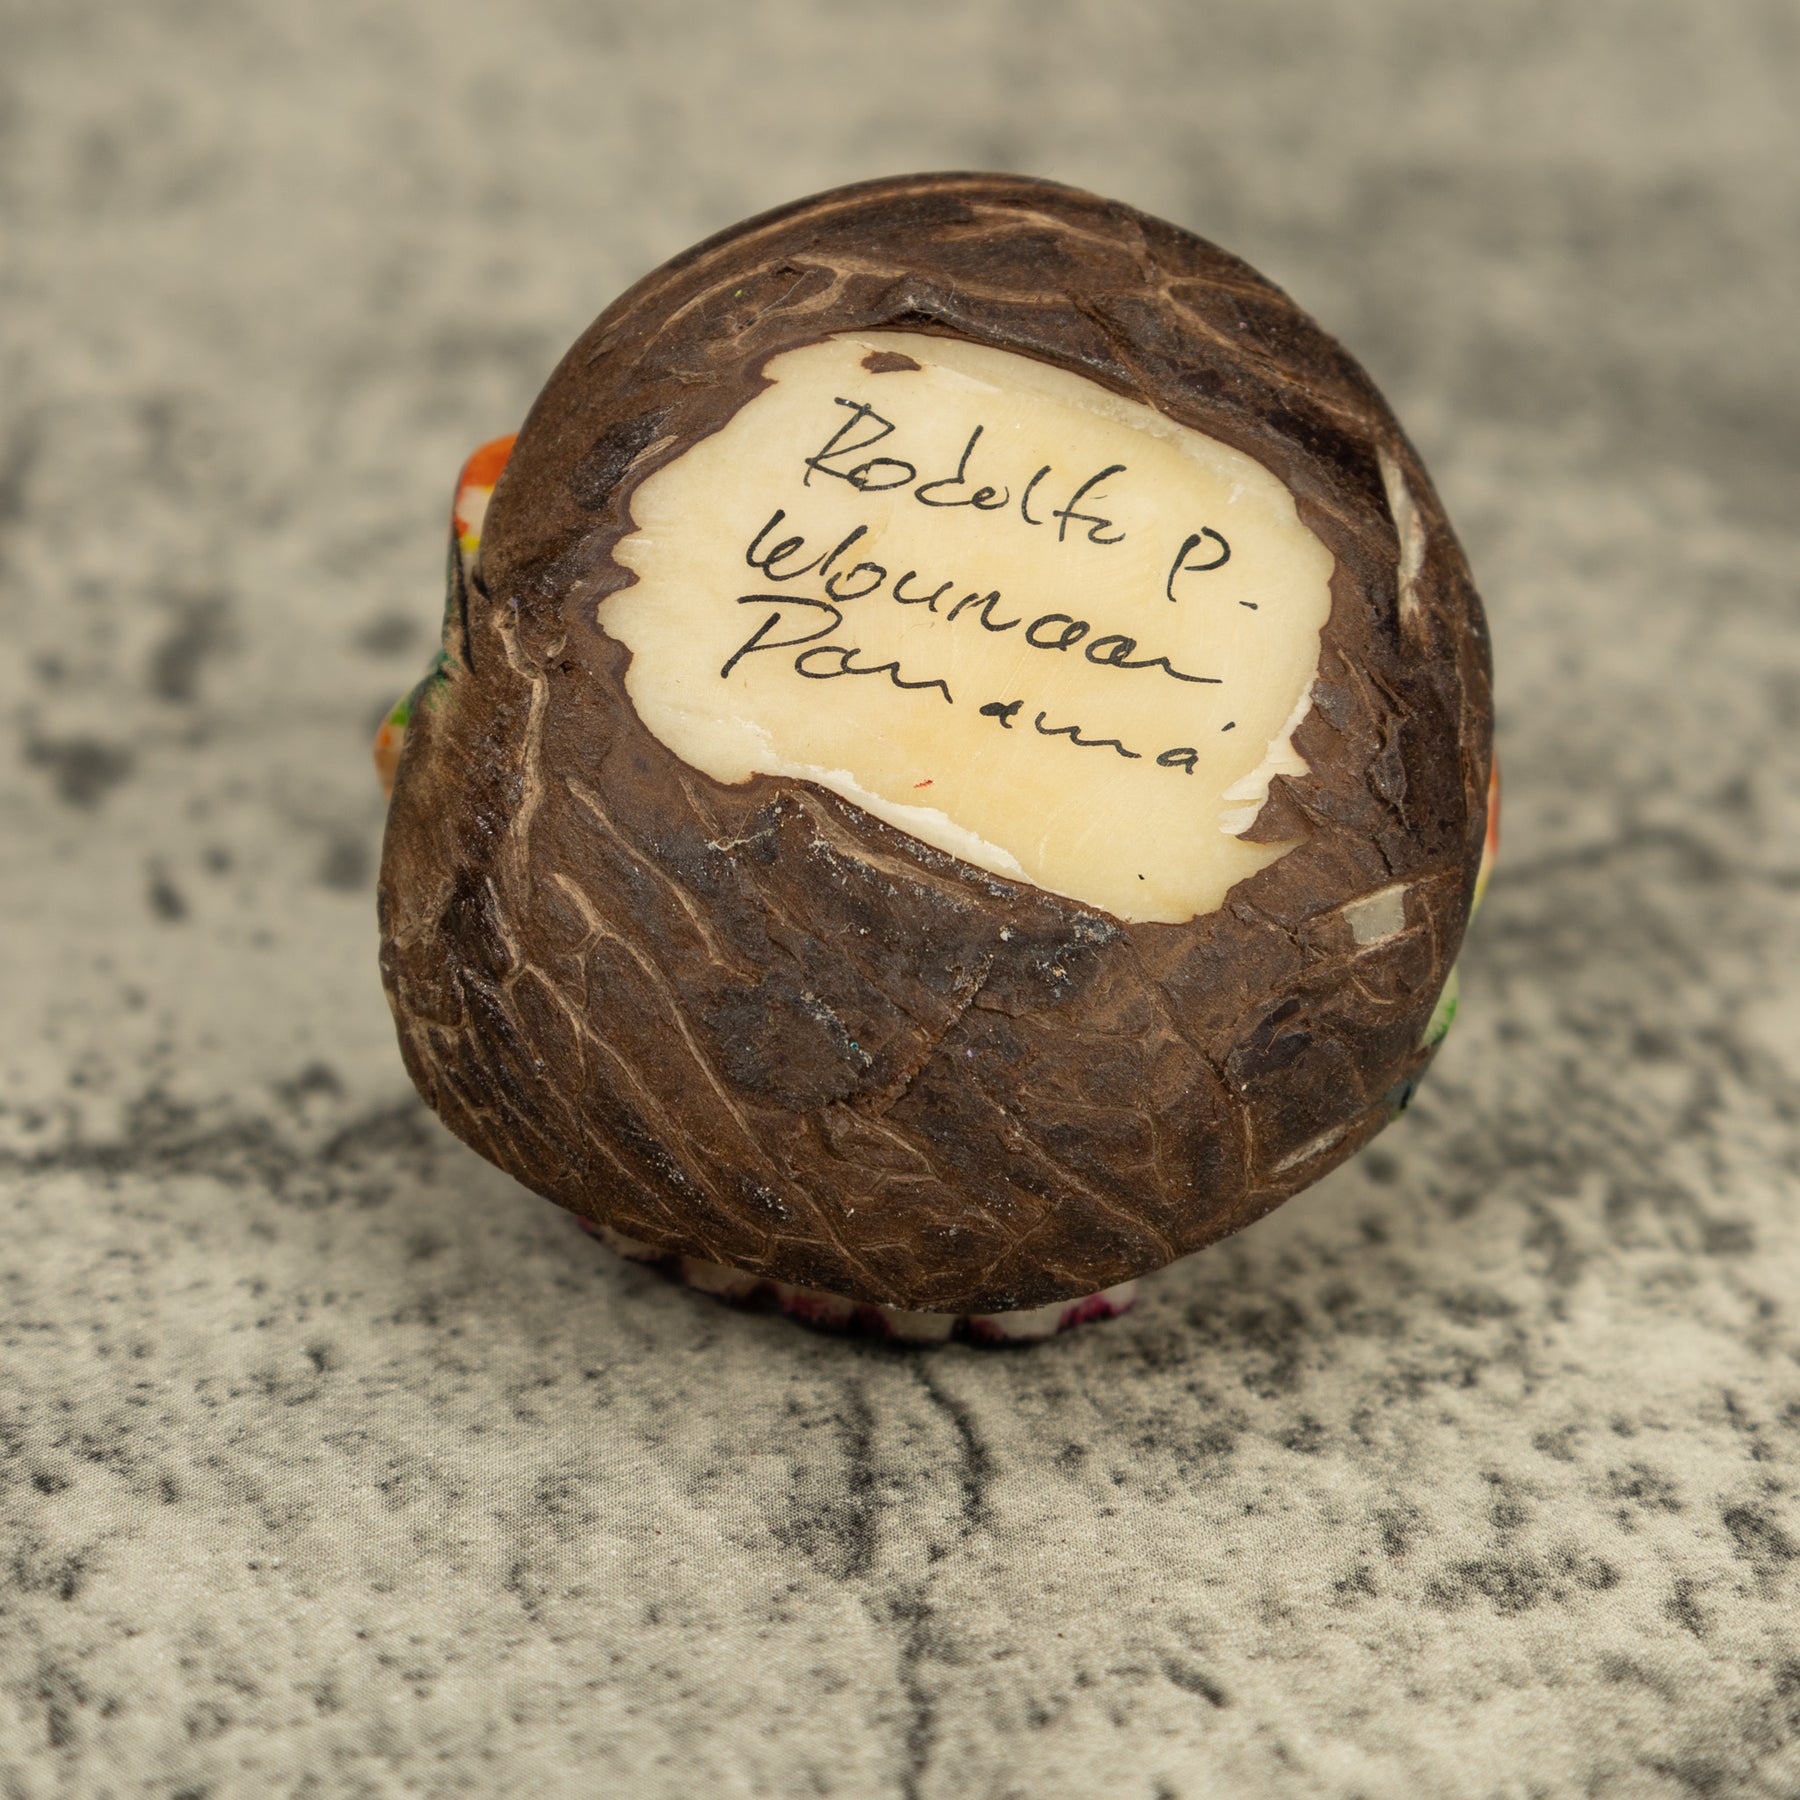 Rodolfo P.
Wounaan
Panamá